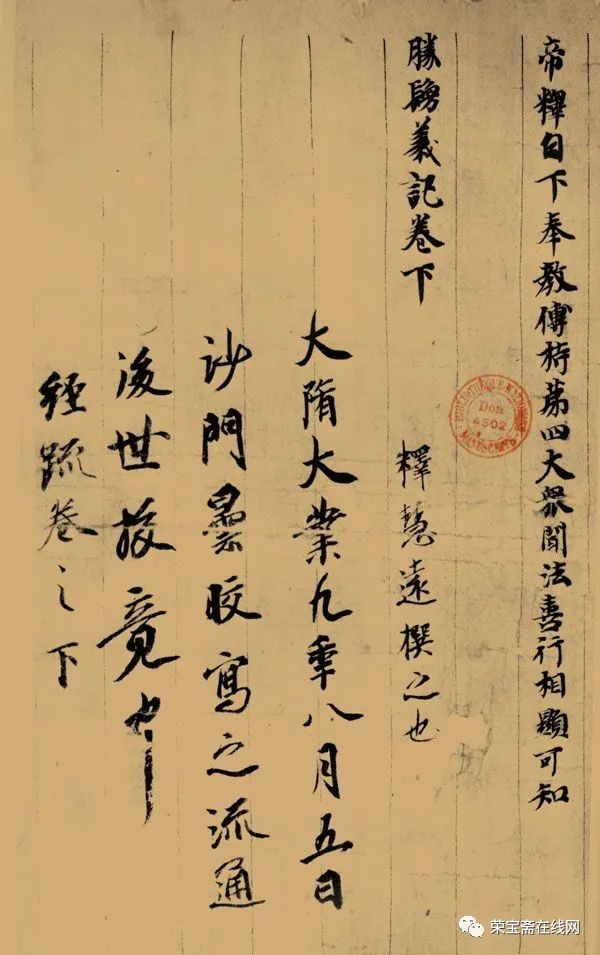 帝釋白下奉教傳持苐四大衆聞法善行相顯可知
勝鬘義記卷下
釋慧遠撰之也
大隋大業九年八月五日
沙門曇皎寫之流通
後世校竟了
經疏卷之下
BIBLIOTHEQUE NATIONALE
Don
4502
MANUSCRITS
荣宝斋在线网